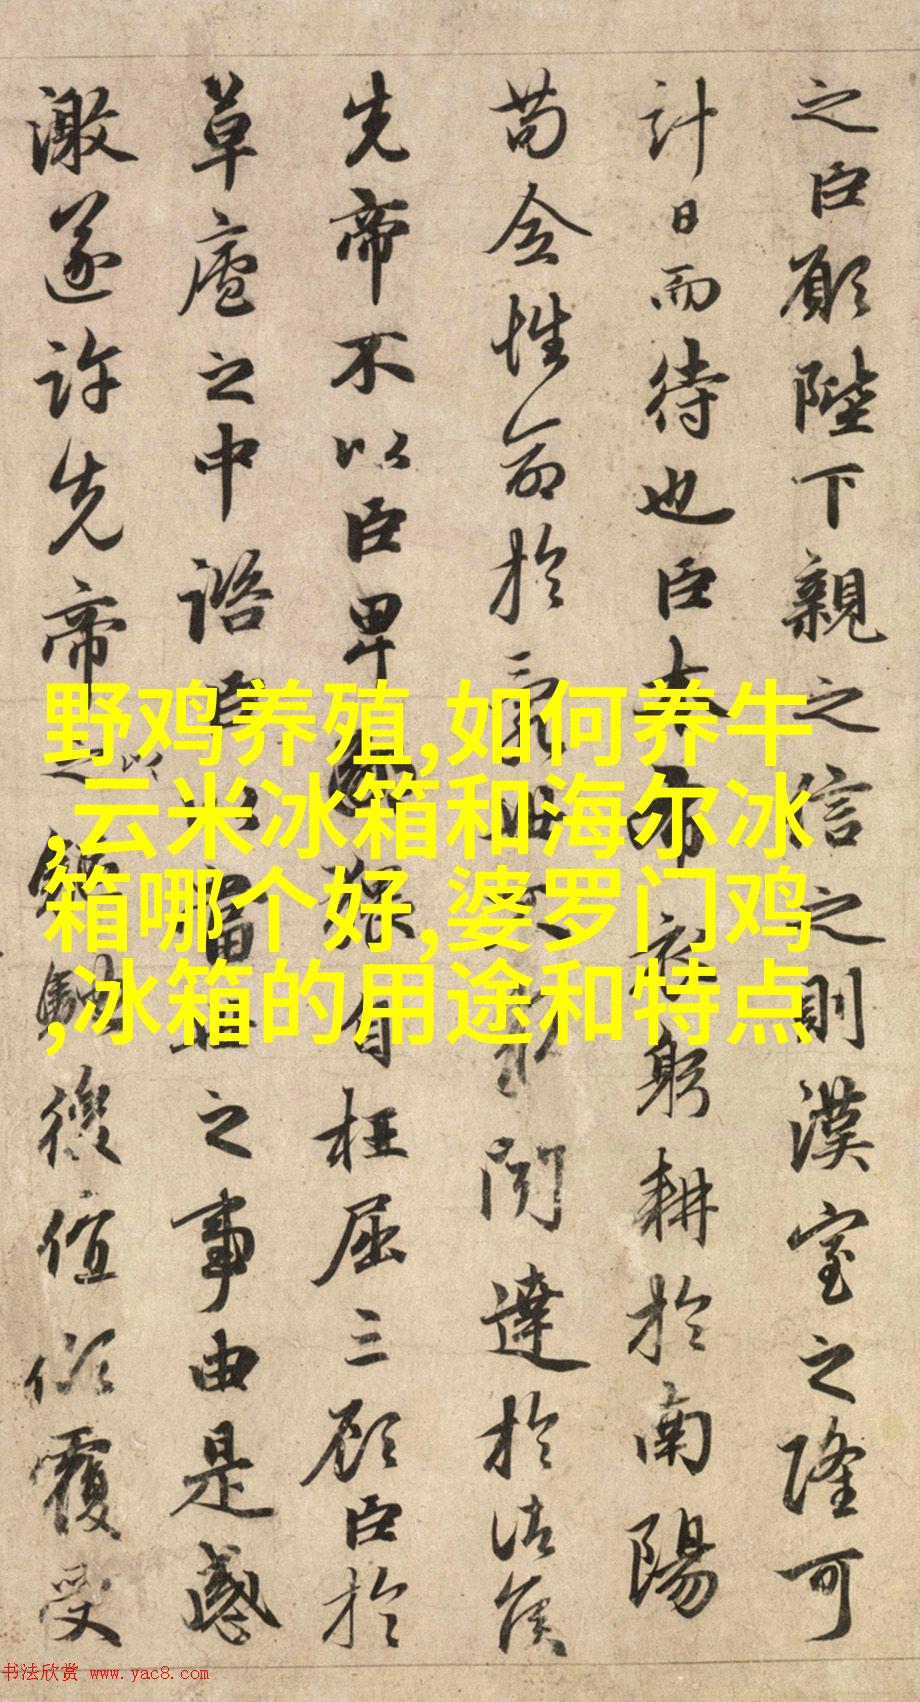 之臣願陛下親之信之則漢室之隆可
計日而待也臣本布衣躬耕於南陽
苟全性命於亂世不求聞達於諸侯
先帝不以臣卑鄙猥自枉屈三顧臣於
草廬之中諮臣以當世之事由是感
激遂許先帝之以後值傾覆受
野鸡养殖,如何养牛
,云米冰箱和海尔冰
箱哪个好,婆罗门鸡
,冰箱的用途和特点
书法欣赏 www.yac8.com